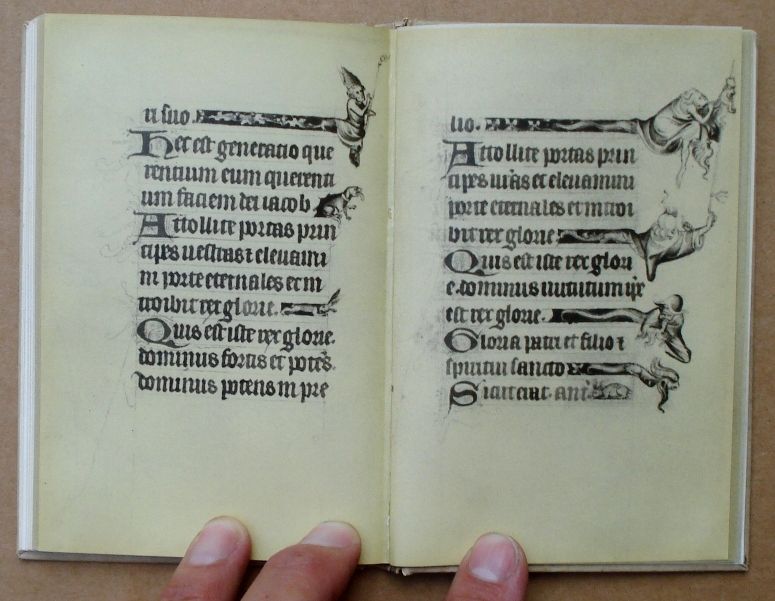 ri suo.
Hec est generatio que
rentium eum querenti
um faciem dei iacob
Attollite portas prin
cipes uestras ⁊ eleuami
ni porte eternales et in
troibit rex glorie.
Quis est iste rex glorie.
dominus fortis et potēs.
dominus potens in pre
lio.
Attollite portas prin
cipes ur̄as et eleuamini
porte eternales et introi
bit rex glorie.
Quis est iste rex glori
e. dominus uirtutum ip̄e
est rex glorie.
Gloria patri et filio ⁊
spiritui sancto
Sicut erat. ant̄.